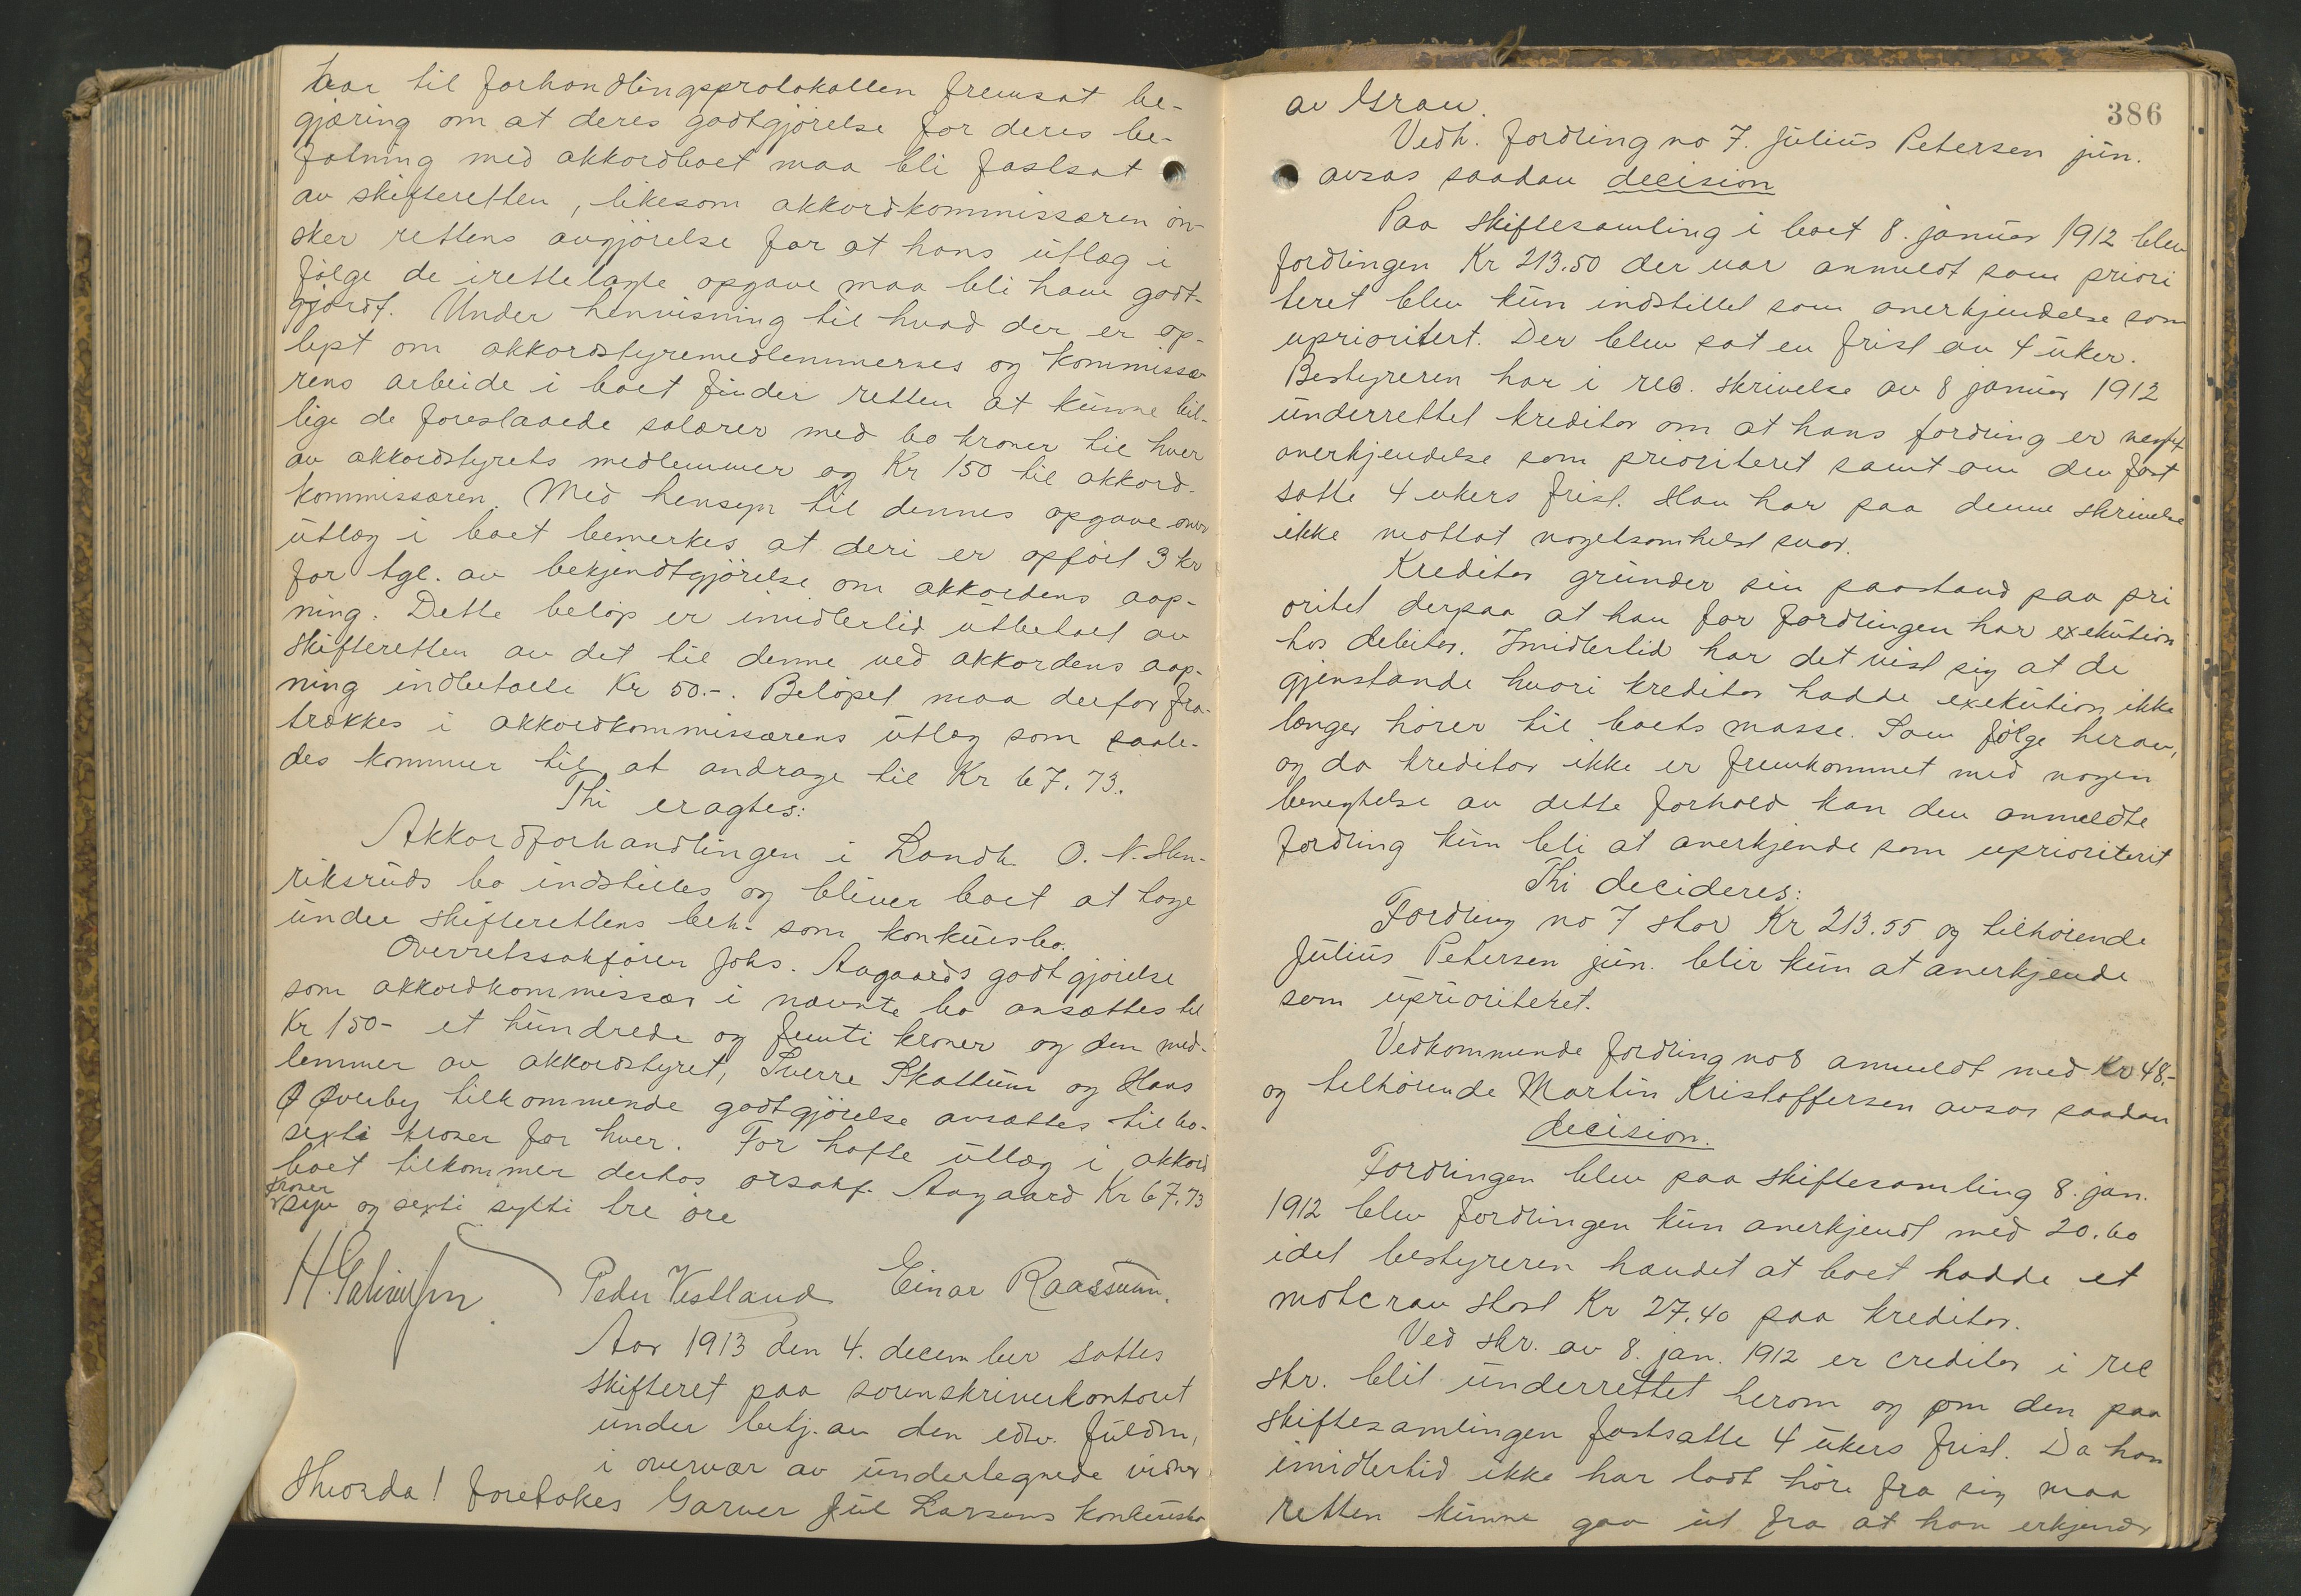 har til forhandlingsprotokollen fremsat be-
gjæring om at deres godtgjörelse for deres be-
fatning med akkordboet maa bli fastsat
av skifteretten, likesom akkordkommissæren ön-
sker rettens avgjörelse for at hans utlæg i
fölge de irettelagte opgave maa bli ham godt-
gjordt. Under henvisning til hvad der er op-
lyst om akkordstyremedlemmernes og kommissæ
rens arbeide i boet finder retten at kunne bil-
lige de foreslaaede salærer med 60 kroner til hver
av akkordstyrets medlemmer og Kr 150 til akkord-
kommissæren. Med hensyn til dennes opgave over
utlæg i boet bemerkes at deri er opfört 3 kr
for tgl. av bekjendtgjörelse om akkordens aap-
ning. Dette belöp er imidlertid utbetalt av
skifteretten av det til denne ved akkordens aap-
ning indbetalte Kr 50.-. Belöpet maa derfor fra-
trækkes i akkordkommissærens utlæg som saale-
des kommer til at andrage til Kr 67.73.
Thi eragtes:
Akkordforhandlingen i Landh. O. N. Hen-
riksruds bo indstilles og bliver boet at tage
under skifterettens beh. som konkursbo.
Overretssakförer Johs. Aagaards godtgjörelse
som akkordkommissær i nævnte bo ansættes til
Kr 150- et hundrede og femti kroner og den med-
lemmer av akkordstyret, Sverre Skattum og Hans
O Överby tilkommende godtgjörelse ansættes til 60-
sexti kroner for hver. For hafte utlæg i akkord
boet tilkommer derhos orsakf. Aagaard Kr 67.73
kroner
syv og sexti sytti tre öre
Peder Vestland Einar Raassum.
Aar 1913 den 4. december sattes
skifteret paa sorenskriverkontoret
under bestj. av den edsv. fuldm,
i overvær av undertegnede vidner
Hvorda! foretokes Garver Jul Larsens konkursbo
386
av Gran.
Vedk. fordring no 7. Julius Petersen jun.
avsas saadan decision
Paa skiftesamling i boet 8. januar 1912 blev
fordringen Kr 213.50 der var anmeldt som priori
teret blev kun indstillet som anerkjendelse som
uprioritert. Der blev sat en frist av 4 uker.
Bestyreren har i rec. skrivelse av 8 januar 1912
underrettet kreditor om at hans fordring er negtet
anerkjendelse som prioriteret samt om den fast
satte 4 ukers frist. Han har paa denne skrivelse
ikke mottat nogetsomhelst svar.
Kreditor grunder sin paastand paa pri
oritet derpaa at han for fordringen har exekution
hos debitor. Imidlertid har det vist sig at de
gjenstande hvori kreditor hadde exekution ikke
længer hörer til boets masse. Som fölge herav,
og da kreditor ikke er fremkommet med nogen
benegtelse av dette forhold kan den anmeldte
fordring kun bli at anerkjende som uprioritert
Thi decideres:
Fordring no 7 stor Kr 213.55 og tilhörende
Julius Petersen jun. blir kun at anerkjende
som uprioriteret.
Vedkommende fordring no 8 anmeldt med Kr 48.-
og tilhörende Martin Kristoffersen avsas saadan
decision.
Fordringen blev paa skiftesamling 8. jan.
1912 blev fordringen kun anerkjendt med 20.60
idet bestyreren hævdet at boet hadde et
motcrav stort Kr 27.40 paa kreditor.
Ved skr. av 8. jan. 1912 er creditor i rec
skr. blit underrettet herom og om den paa
skiftesamlingen fastsatte 4 ukers frist. Da han
imidlertid ikke har ladt höre fra sig maa
retten kunne gaa ut fra at han erkjender